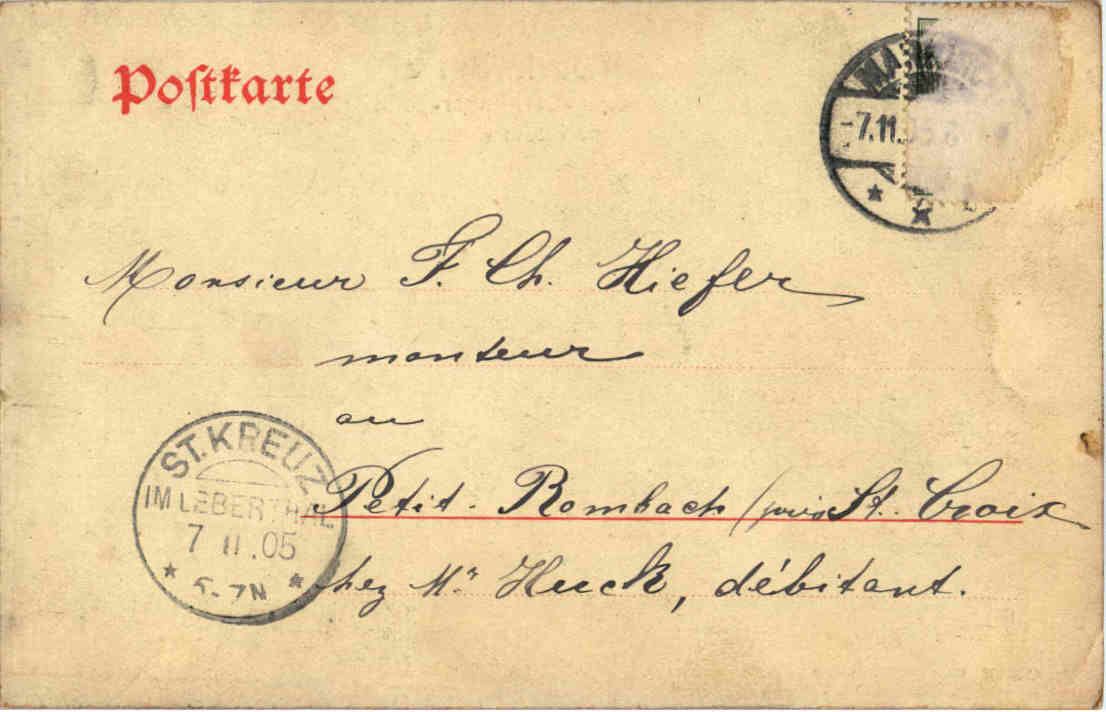 Postkarte
-7.11.
Monsieur F. Ch. Hiefer
monteur
au
Petit-Rombach (près St. Croix
chez Mr Huck, débitant.
ST. KREUZ
IM LEBERTHAL
7 11.05
5-7N